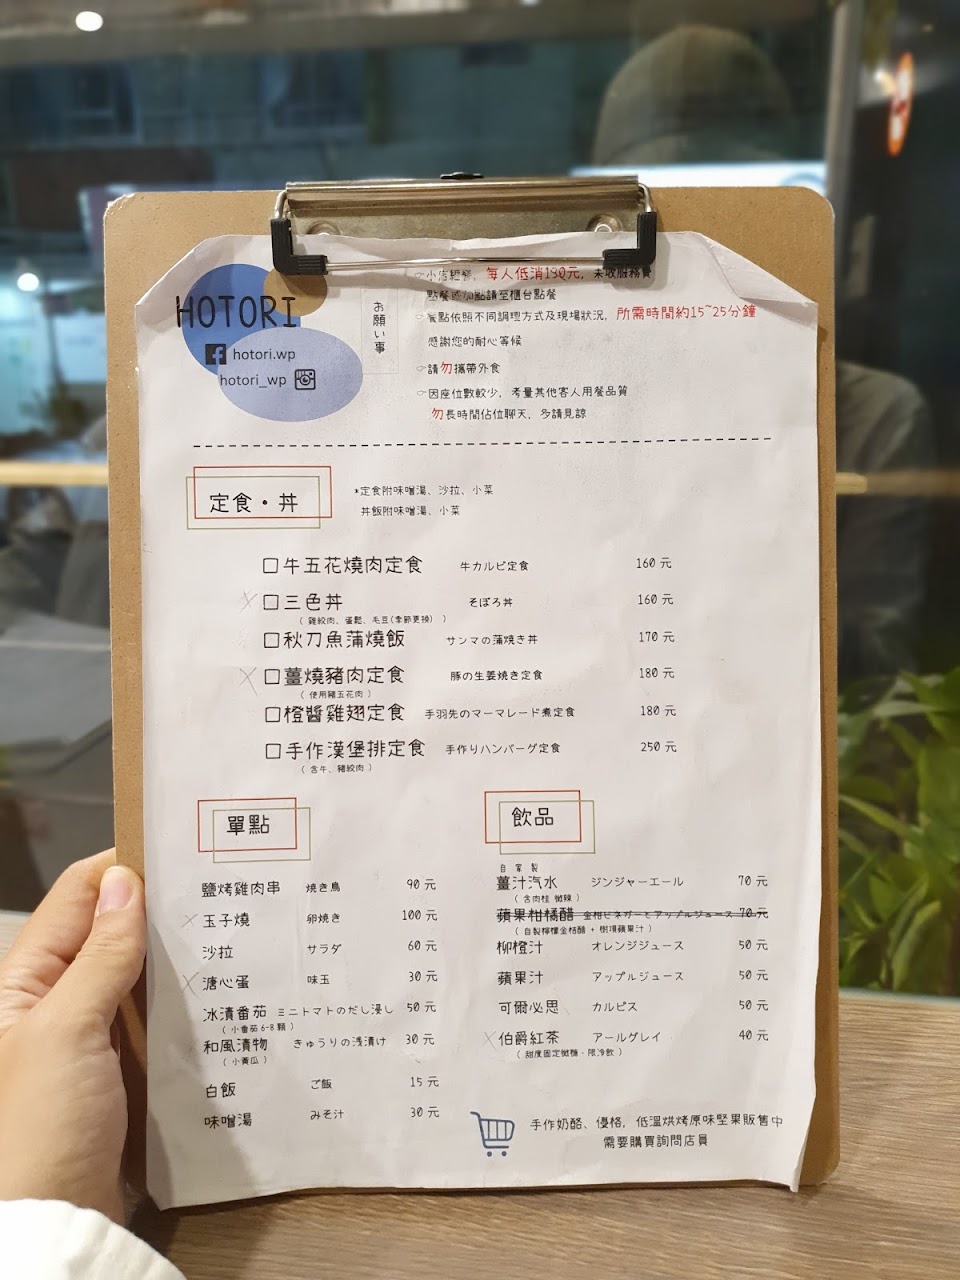 HOTORI
hotori.wp
hotori_wp
お願い事
每人低消180元, 未收服務費
點餐或加點請至櫃台點餐
餐點依照不同調理方式及現場狀況, 所需時間約15~25分鐘
感謝您的耐心等候
請勿攜帶外食
因座位數較少, 考量其他客人用餐品質
勿長時間佔位聊天, 多請見諒
定食・丼
*定食附味噌湯、沙拉、小菜
丼飯附味噌湯、小菜
□牛五花燒肉定食 牛カルビ定食 160 元
□三色丼 そぼろ丼 160 元
( 雞絞肉、蛋鬆、毛豆(季節更換) )
□秋刀魚蒲燒飯 サンマの蒲焼き丼 170 元
□薑燒豬肉定食 豚の生姜焼き定食 180 元
( 使用豬五花肉 )
□橙醬雞翅定食 手羽先のマーマレード煮定食 180 元
□手作漢堡排定食 手作りハンバーグ定食 250 元
( 含牛、豬絞肉 )
單點
鹽烤雞肉串 焼き鳥 90 元
玉子燒 卵焼き 100 元
沙拉 サラダ 60 元
溏心蛋 味玉 30 元
冰漬番茄 ミニトマトのだし浸し 50 元
( 小番茄 6-8 顆 )
和風漬物 きゅうりの浅漬け 30 元
( 小黃瓜 )
白飯 ご飯 15 元
味噌湯 みそ汁 30 元
飲品
自家製
薑汁汽水 ジンジャーエール 70 元
( 含肉桂 微辣 )
蘋果柑橘醋 金柑ビネガーとアップルジュース 70 元
( 自製檸檬金桔醋 + 樹頂蘋果汁 )
柳橙汁 オレンジジュース 50 元
蘋果汁 アップルジュース 50 元
可爾必思 カルピス 50 元
伯爵紅茶 アールグレイ 40 元
( 甜度固定微糖、限冷飲 )
手作奶酪、優格, 低溫烘烤原味堅果販售中
需要購買詢問店員